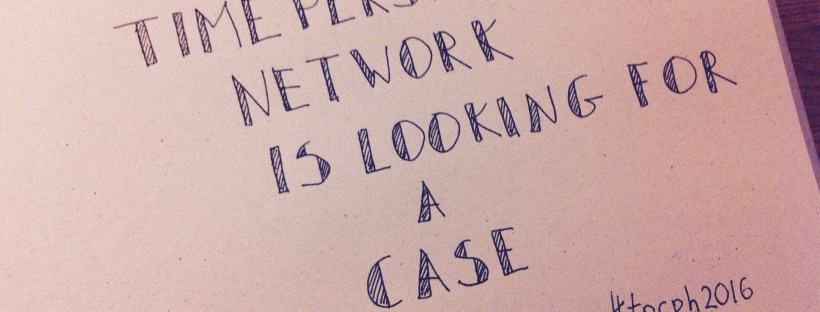 TIME
NETWORK
IS LOOKING FOR
A
CASE
#tocph2016